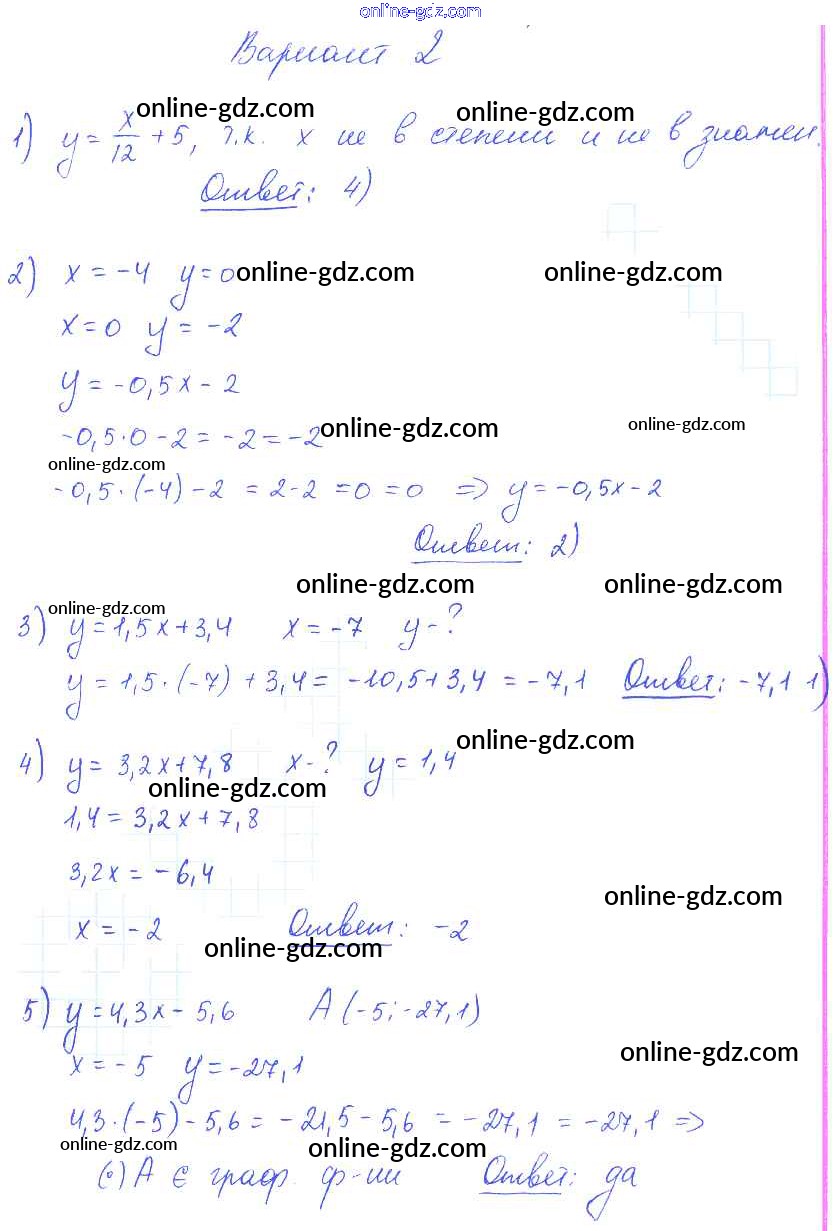 online-gdz.com
Вариант 2
online-gdz.com online-gdz.com
1) y = x/12 + 5, т.к. x не в степени и не в знамен.
Ответ: 4)
2) x = -4 y = 0 online-gdz.com online-gdz.com
x = 0 y = -2
y = -0,5x - 2
-0,5·0 - 2 = -2 = -2 online-gdz.com online-gdz.com
online-gdz.com
-0,5·(-4) - 2 = 2-2 = 0 = 0 => y = -0,5x - 2
Ответ: 2)
online-gdz.com online-gdz.com
online-gdz.com
3) y = 1,5x + 3,4 x = -7 y - ?
y = 1,5·(-7) + 3,4 = -10,5 + 3,4 = -7,1 Ответ: -7,1 1)
online-gdz.com
4) y = 3,2x + 7,8 x - ? y = 1,4
online-gdz.com
1,4 = 3,2x + 7,8
3,2x = -6,4
online-gdz.com
x = -2 Ответ: -2
online-gdz.com
5) y = 4,3x - 5,6 A (-5; -27,1)
online-gdz.com
x = -5 y = -27,1
4,3·(-5) - 5,6 = -21,5 - 5,6 = -27,1 = -27,1 =>
online-gdz.com online-gdz.com
(·) A ∈ граф. ф-ии Ответ: да